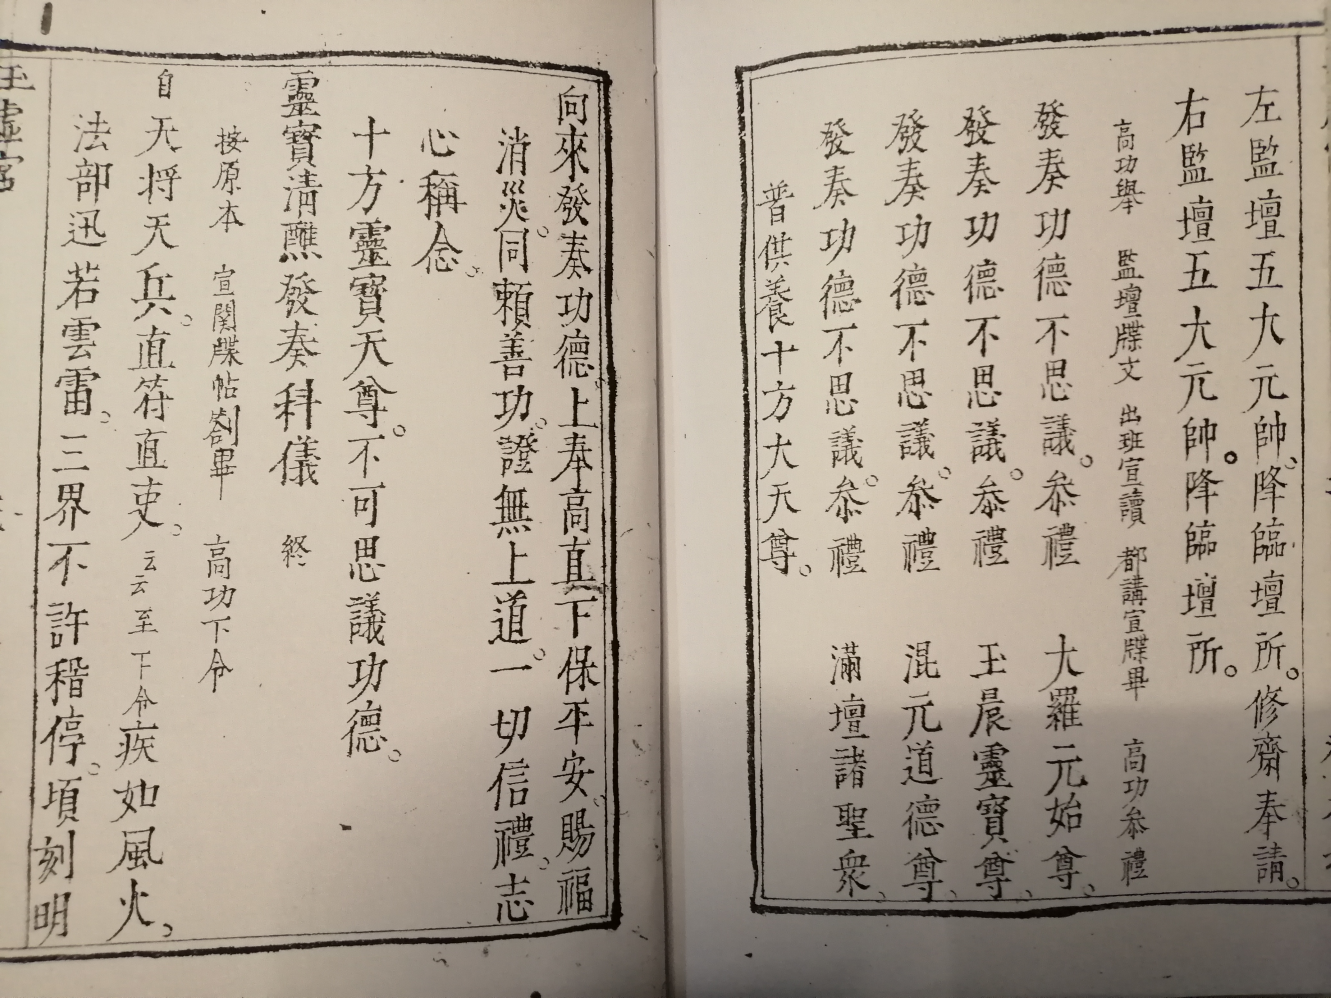 左監壇五大元帥。降臨壇所。修齋奉請。
右監壇五大元帥。降臨壇所。
高功舉 監壇牒文 出班宣讀 都講宣牒畢 高功叅禮
發奏功德不思議。叅禮 大羅元始尊。
發奏功德不思議。叅禮 玉晨靈寶尊。
發奏功德不思議。叅禮 混元道德尊。
發奏功德不思議。叅禮 滿壇諸聖衆。
普供養十方大天尊。
向來發奏功德。上奉高真。下保平安。賜福
消災。同賴善功。證無上道。一切信禮。志
心稱念。
十方靈寶天尊。不可思議功德。
靈寶清醮發奏科儀 終
按原本 宣関牒帖劄畢 高功下令
自天将天兵。直符直吏。云云至下令疾如風火。
法部迅若雲雷。三界不許稽停。頃刻明
玉虛宮